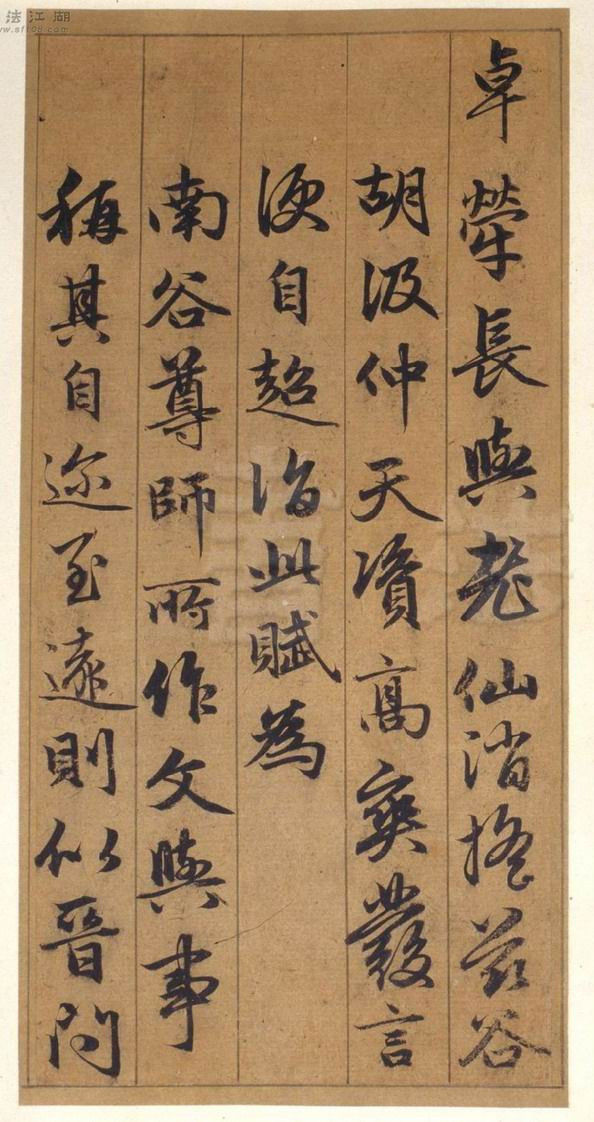 卓犖長與老仙消搖茲谷
胡汲仲天資高爽發言
便自超詣此賦為
南谷尊師所作文與事
稱其自迩至遠則似晉問
法江湖
www.sf108.com